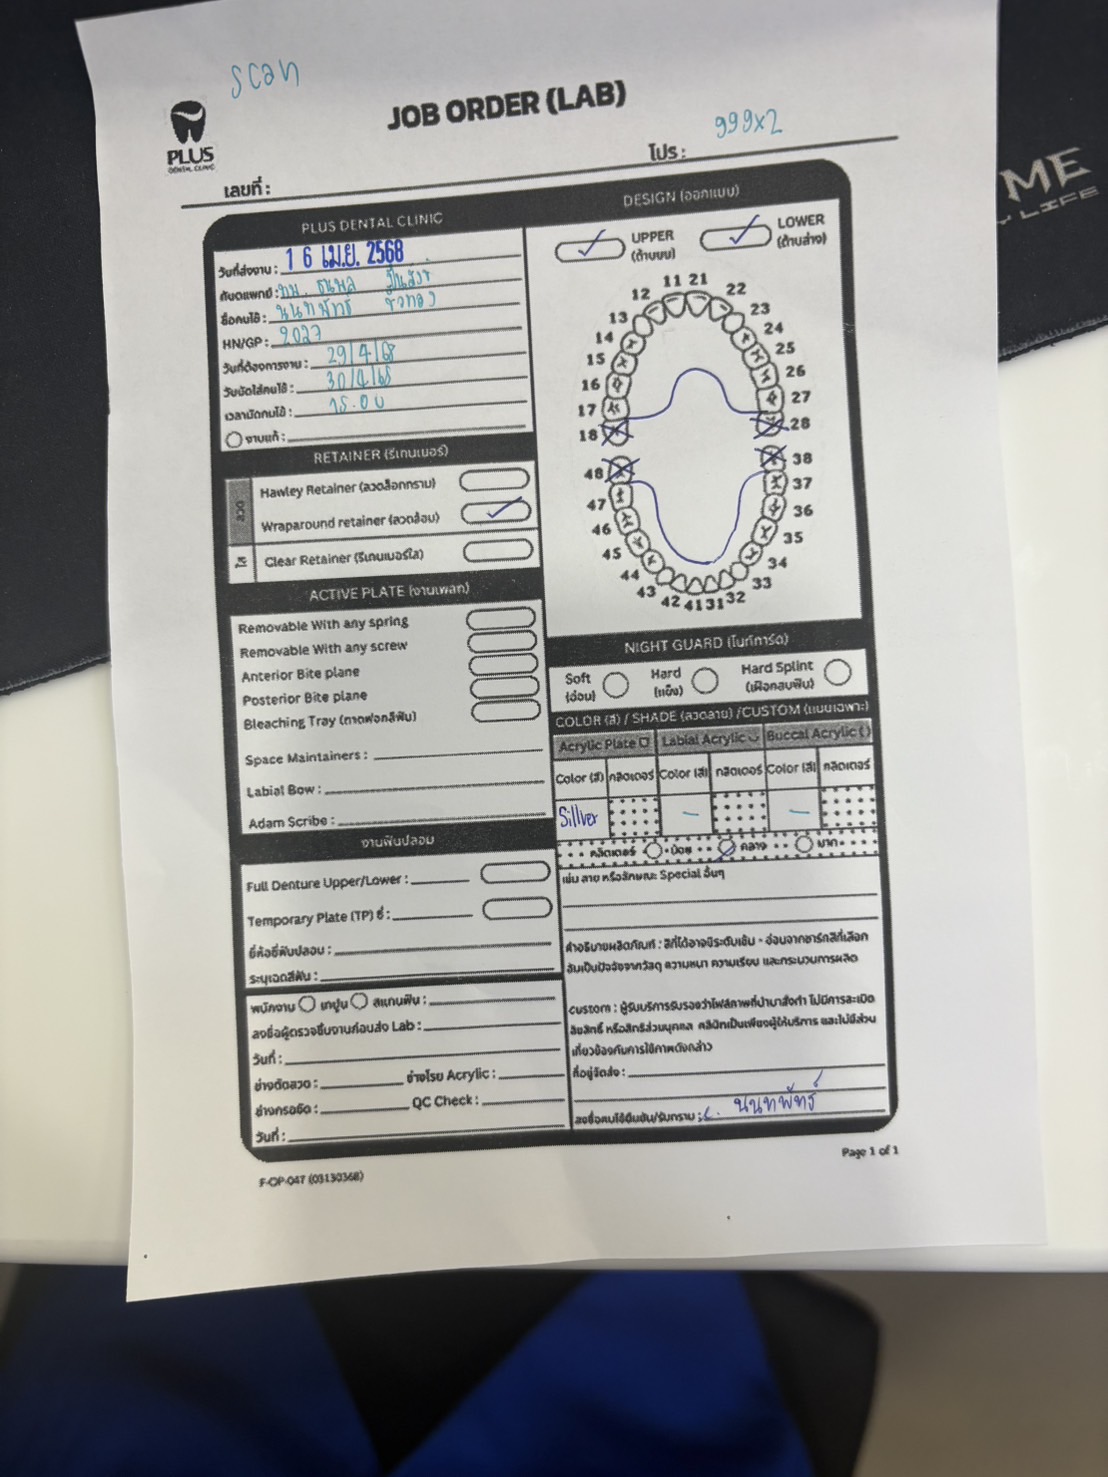 scan
PLUS
DENTAL CLINIC
JOB ORDER (LAB)
เลขที่ :
โปร : 999x2
PLUS DENTAL CLINIC
วันที่ส่งงาน : 16 เม.ย. 2568
ทันตแพทย์ : ทพ.
ชื่อคนไข้ : นนทพัทธ์
HN/GP : 2027
วันที่ต้องการงาน : 29/4/68
วันนัดใส่คนไข้ : 30/4/68
เวลานัดคนไข้ : 15.00
งานแก้ :
RETAINER (รีเทนเนอร์)
ลวด
Hawley Retainer (ลวดล็อกกราม)
Wraparound retainer (ลวดล้อม)
ใส
Clear Retainer (รีเทนเนอร์ใส)
ACTIVE PLATE (งานเพลท)
Removable With any spring
Removable With any screw
Anterior Bite plane
Posterior Bite plane
Bleaching Tray (ถาดฟอกสีฟัน)
Space Maintainers :
Labial Bow :
Adam Scribe :
งานฟันปลอม
Full Denture Upper/Lower :
Temporary Plate (TP) ซี่ :
ยี่ห้อซี่ฟันปลอม :
ระบุเฉดสีฟัน :
พนักงาน เทปูน สแกนฟัน :
ลงชื่อผู้ตรวจชิ้นงานก่อนส่ง Lab :
วันที่ :
ช่างดัดลวด : ช่างโรย Acrylic :
ช่างกรอขัด : QC Check :
วันที่ :
F-OP-047 (03130368)
DESIGN (ออกแบบ)
UPPER
(ด้านบน)
LOWER
(ด้านล่าง)
11 21
12 22
13 23
14 24
15 25
16 26
17 27
18 28
48 38
47 37
46 36
45 35
44 34
43 33
42 41 31 32
NIGHT GUARD (ไนท์การ์ด)
Soft
(อ่อน)
Hard
(แข็ง)
Hard Splint
(เฝือกสบฟัน)
COLOR (สี) / SHADE (ลวดลาย) /CUSTOM (แบบเฉพาะ)
Acrylic Plate Labial Acrylic Buccal Acrylic
Color (สี) กลิตเตอร์ Color (สี) กลิตเตอร์ Color (สี) กลิตเตอร์
Sillver - -
กลิตเตอร์ น้อย กลาง มาก
เช่น ลาย หรือลักษณะ Special อื่นๆ
คำอธิบายผลิตภัณฑ์ : สีที่ได้อาจมีระดับเข้ม - อ่อนจากชาร์ทสีที่เลือก
อันเป็นปัจจัยจากวัสดุ ความหนา ความเรียบ และกระบวนการผลิต
custom : ผู้รับบริการรับรองว่าไฟล์ภาพที่นำมาสั่งทำ ไม่มีการละเมิด
ลิขสิทธิ์ หรือสิทธิส่วนบุคคล คลินิกเป็นเพียงผู้ให้บริการ และไม่มีส่วน
เกี่ยวข้องกับการใช้ภาพดังกล่าว
ที่อยู่จัดส่ง :
ลงชื่อคนไข้ยืนยัน/รับทราบ : นนทพัทธ์
Page 1 of 1